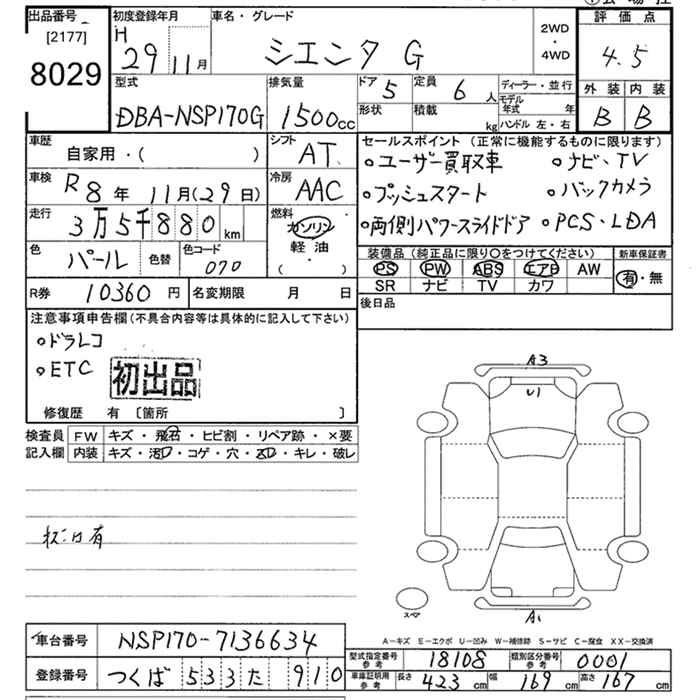 出品番号 [2177] 8029
初度登録年月 H 29年 11月
車名・グレード シエンタ G
2WD・4WD
評価点 4.5
外装 B 内装 B
型式 DBA-NSP170G
排気量 1500cc
ドア 5 定員 6人
形状 積載 kg
ディーラー・並行
モデル年式 年
ハンドル 左・右
車歴 自家用・( )
シフト AT
車検 R8年 11月(29日)
冷房 AAC
走行 3万5千880km
燃料 ガソリン 軽油 ( )
色 パール 色替 色コード 070
R券 10360円 名変期限 月 日
セールスポイント(正常に機能するものに限ります)
○ユーザー買取車 ○ナビ、TV
○プッシュスタート ○バックカメラ
○両側パワースライドドア ○PCS・LDA
装備品(純正品に限り○をつけてください) 新車保証書
PS PW ABS エアB AW 有・無
SR ナビ TV カワ
後日品
注意事項申告欄(不具合内容等は具体的に記入して下さい)
○ドラレコ
○ETC 初出品
修復歴 有 〔箇所 〕
検査員 FW キズ・飛石・ヒビ割・リペア跡・×要
記入欄 内装 キズ・汚レ・コゲ・穴・スレ・キレ・破レ
A3
U1
A1
スペア
A−キズ E−エクボ U−凹み W−補修跡 S−サビ C−腐食 XX−交換済
車台番号 NSP170-7136634
登録番号 つくば 533 た 910
型式指定番号 参考 18108 類別区分番号 参考 0001
車庫証明用 参考 長さ 423cm 幅 169cm 高さ 167cm